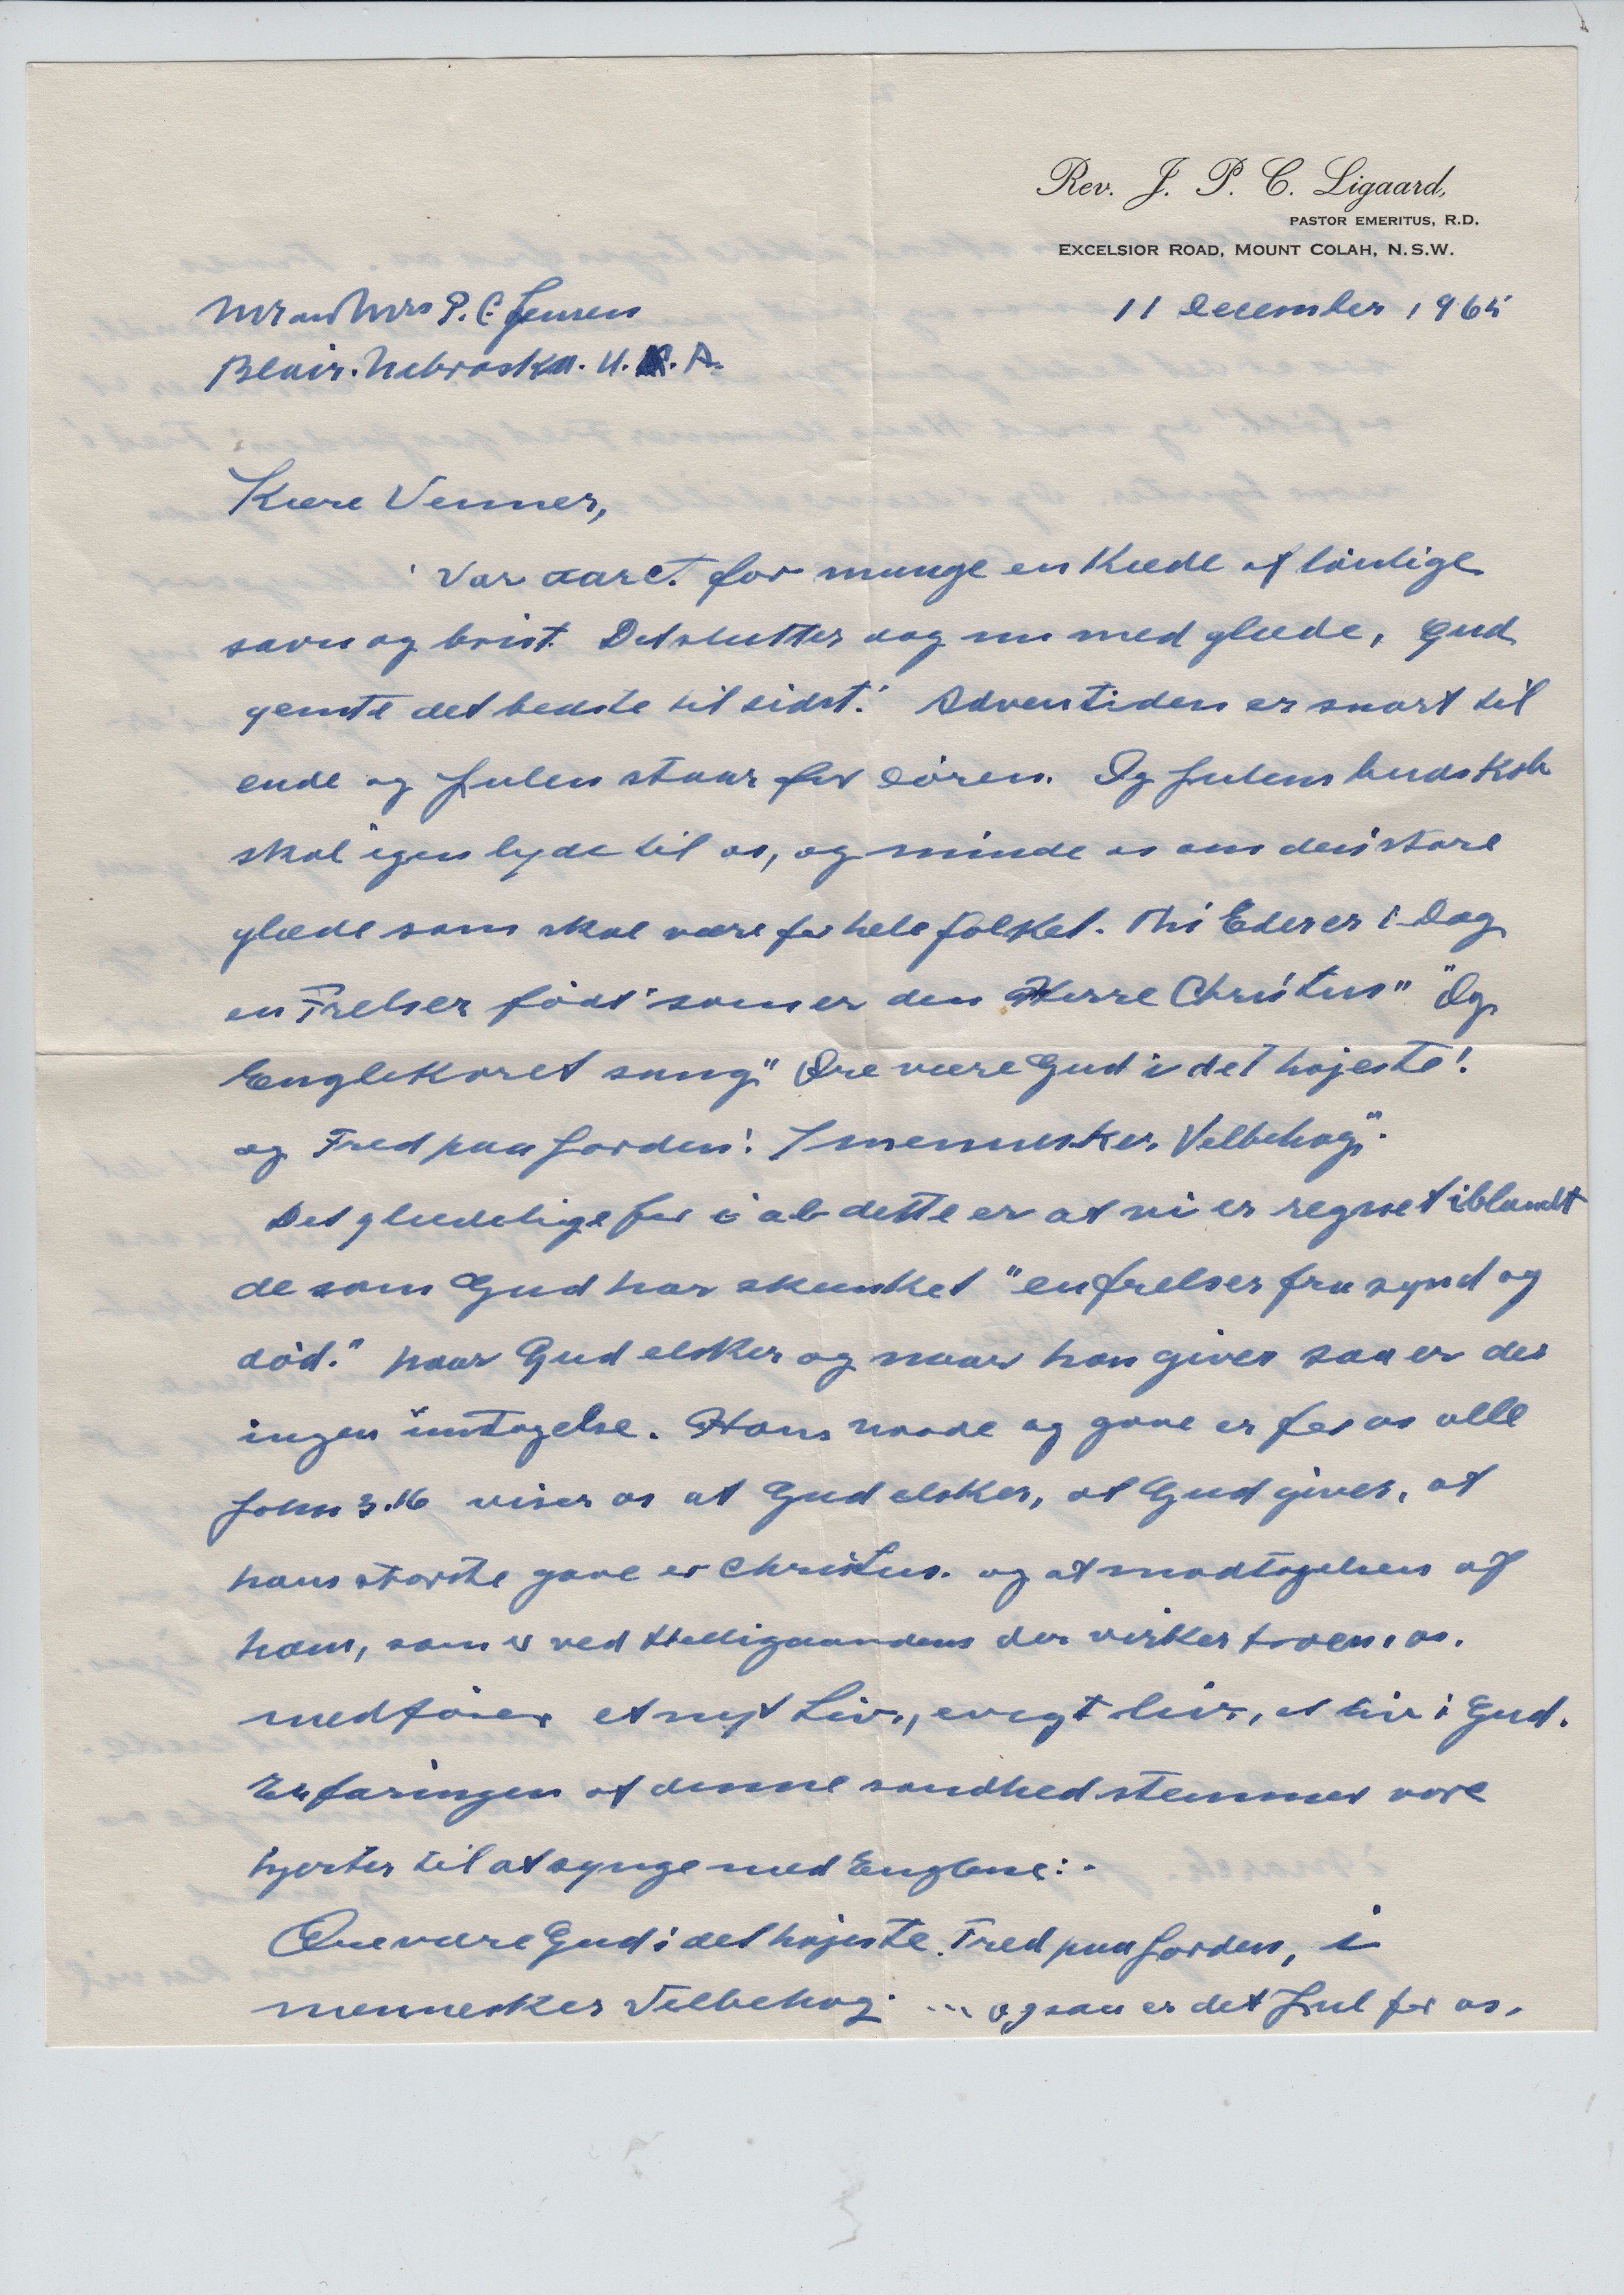 Rev. J. P. C. Ligaard,
PASTOR EMERITUS, R.D.
EXCELSIOR ROAD, MOUNT COLAH, N.S.W.
11 December 1965
Mr and Mrs P. C. Jensen
Blair. Nebraska. U.S.A.
Kære Venner,
' Var aaret. for mange en Kæde af lönlige
savn og brist. Det slutter dog nu med glæde, Gud
gemte det bedste til sidst.' Adventiden er snart til
ende og Julen staar for dören. Og Julens budskab
skal igen lyde til os, og minde os om den store
glæde som skal være for hele folket. Thi Eder er i Dag
en Frelser födt som er den Herre Christus" "Og
Englekoret sang" Ære være Gud i det højeste!
og Fred paa Jorden! I mennesker Velbehag".
Det glædelige for i al dette er at vi er regnet iblandt
de som Gud har skænket "en frelser fra synd og
död." naar Gud elsker og naar han giver saa er der
ingen untagelse. Hans naade og gave er for os alle
John 3.16 viser os at Gud elsker, at Gud giver, at
hans storste gave er Christus. og at modtagelsen af
ham, som er ved Helligaandens der virker troen i os.
medförer et nyt Liv., evigt liv., et liv i Gud.
Erfaringen af denne sandhed stemmer vore
hjerter til at synge med Englene:-
Ære være Gud i det højeste. Fred paa Jorden, i
mennesker Velbehag. ... og saa er det Jul for os.